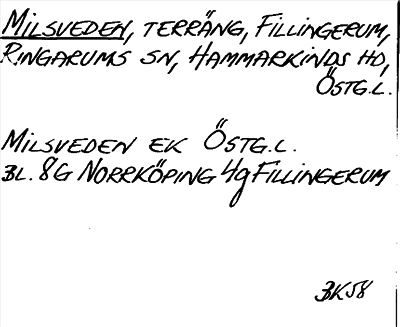 MILSVEDEN, TERRÄNG, FILLINGERUM,
RINGARUMS SN, HAMMARKINDS HD,
ÖSTG.L.
MILSVEDEN EK ÖSTG.L.
BL. 8G NORRKÖPING 4g FILLINGERUM
BK58